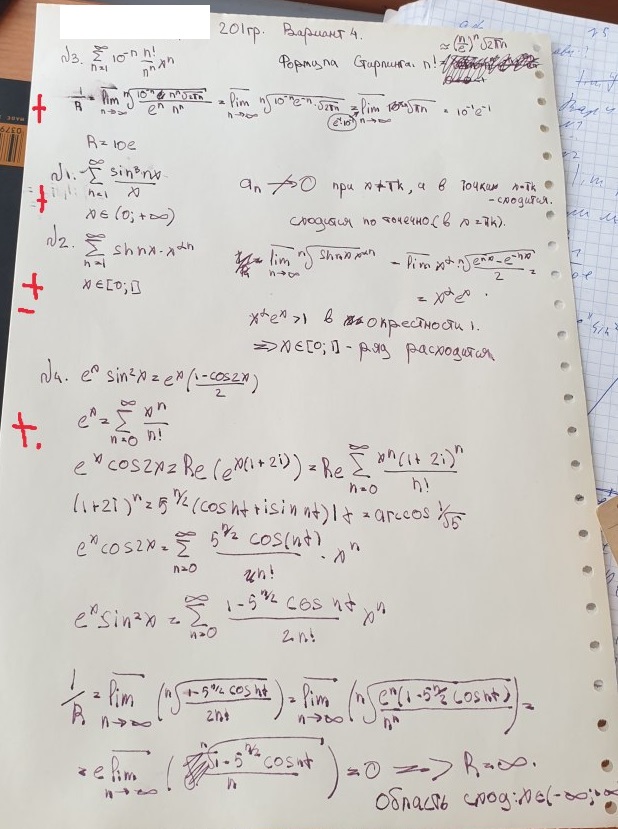 201гр. Вариант 4.
№3. ∑_{n=1}^{∞} 10^{-n} n!/n^n x^n Формула Стирлинга: n! ≈ (n/e)^n √2πn
1/R = lim_{n→∞} ⁿ√(10^{-n} n^n √2πn / e^n n^n) = lim_{n→∞} ⁿ√(10^{-n} e^{-n} √2πn) = e^{-1}·10^{-1} lim_{n→∞} ⁿ√√2πn = 10^{-1}e^{-1}
R = 10e
+
№1. ∑_{n=1}^{∞} sin³nx/x a_n ↛ 0 при x≠πk, а в точках x=πk - сходится.
x∈(0;+∞) сходится по точечно (в x=πk).
+
№2. ∑_{n=1}^{∞} sh nx · x^{αn} lim_{n→∞} ⁿ√(sh nx x^{αn}) = lim x^α ⁿ√((e^{nx} - e^{-nx})/2) =
x∈[0;1] = x^α e^x.
+
-
x^α e^x >1 в окрестности 1.
=> x∈[0;1] - ряд расходится
№4. e^x sin²x = e^x (1-cos2x / 2)
e^x = ∑_{n=0}^{∞} x^n/n!
+.
e^x cos2x = Re(e^{x(1+2i)}) = Re ∑_{n=0}^{∞} x^n(1+2i)^n / n!
(1+2i)^n = 5^{n/2}(cos nt + i sin nt) | t = arccos 1/√5
e^x cos2x = ∑_{n=0}^{∞} 5^{n/2} cos(nt) / n! · x^n
e^x sin²x = ∑_{n=0}^{∞} (1-5^{n/2} cos nt) / 2n! x^n
1/R = lim_{n→∞} (ⁿ√((1-5^{n/2} cos nt)/2n!)) = lim_{n→∞} (ⁿ√(e^n(1-5^{n/2} cos nt)/n^n)) =
= e lim_{n→∞} (ⁿ√(1-5^{n/2} cos nt) / n) = 0 => R=∞.
Область сход: x∈(-∞;+∞